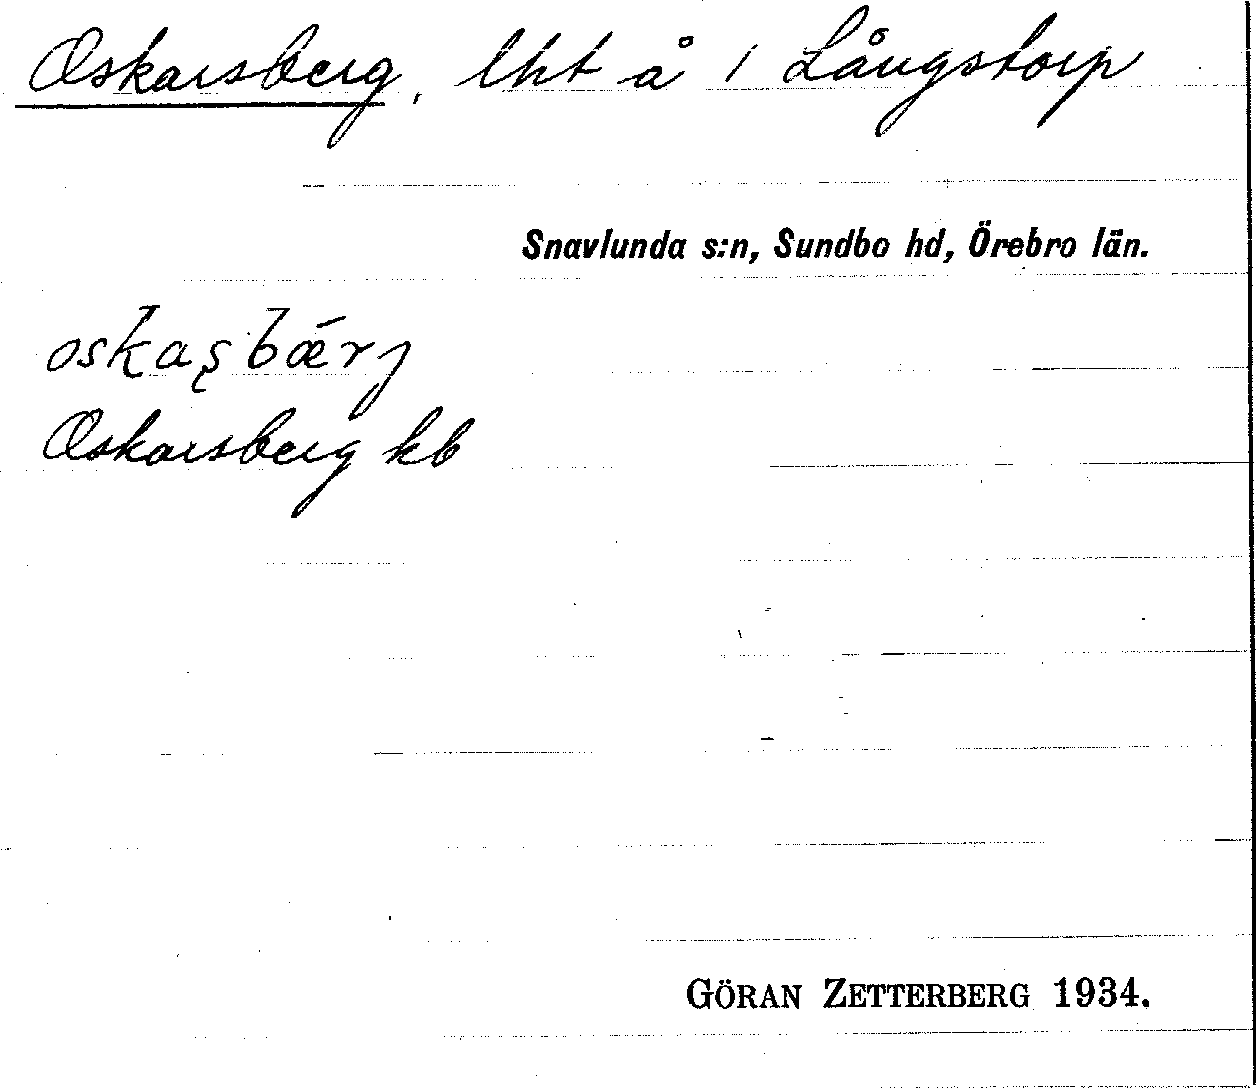 Oskarsberg, lht å 1 Långstorp
Snavlunda s:n, Sundbo hd, Örebro län.
oskaʂbǽrj
Oskarsberg kb
GÖRAN ZETTERBERG 1934.